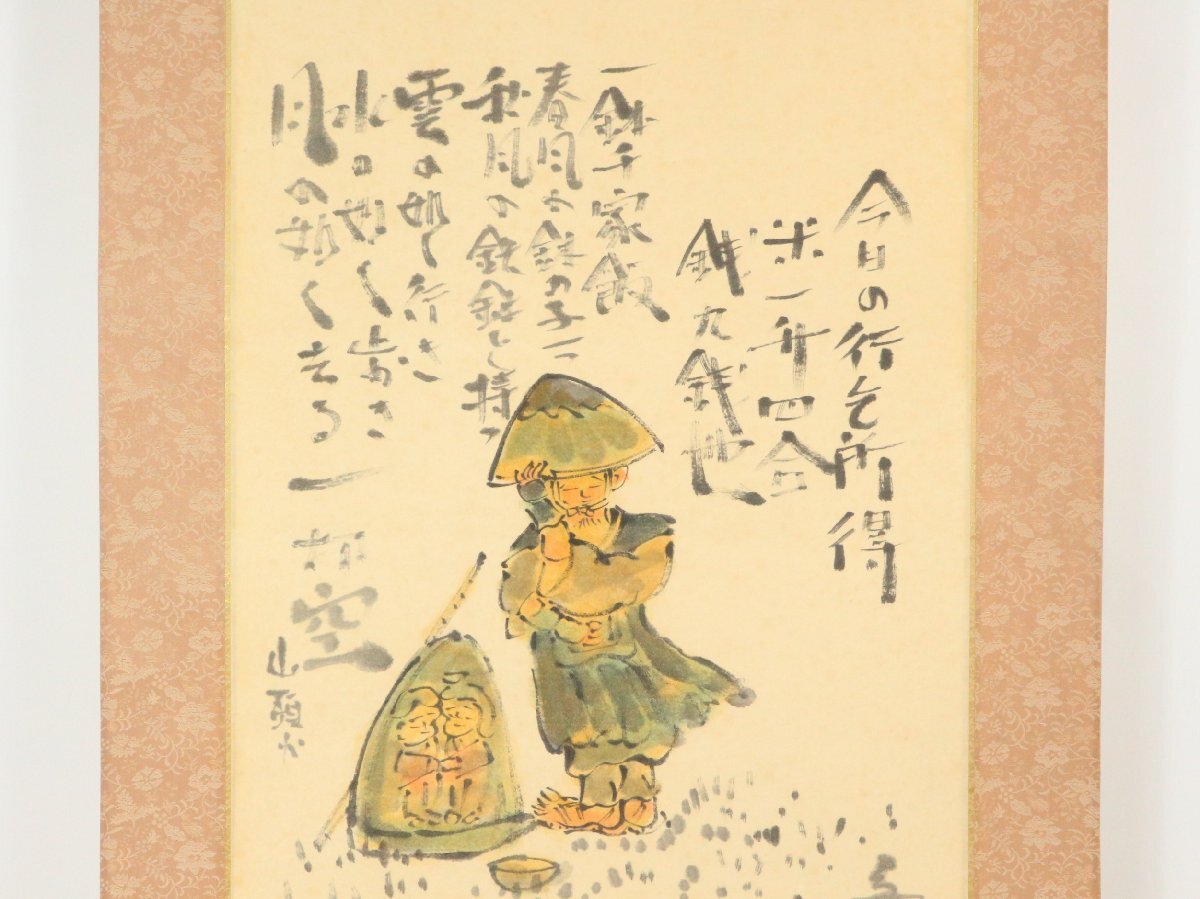 今日の行乞所得
米一升四合
銭九銭也
一鉢千家飯
春風や鉢の子一つ
秋風の鉄鉢を持つ
雲の如く行き
水の如く歩き
風の如く去る
一切空
山頭火